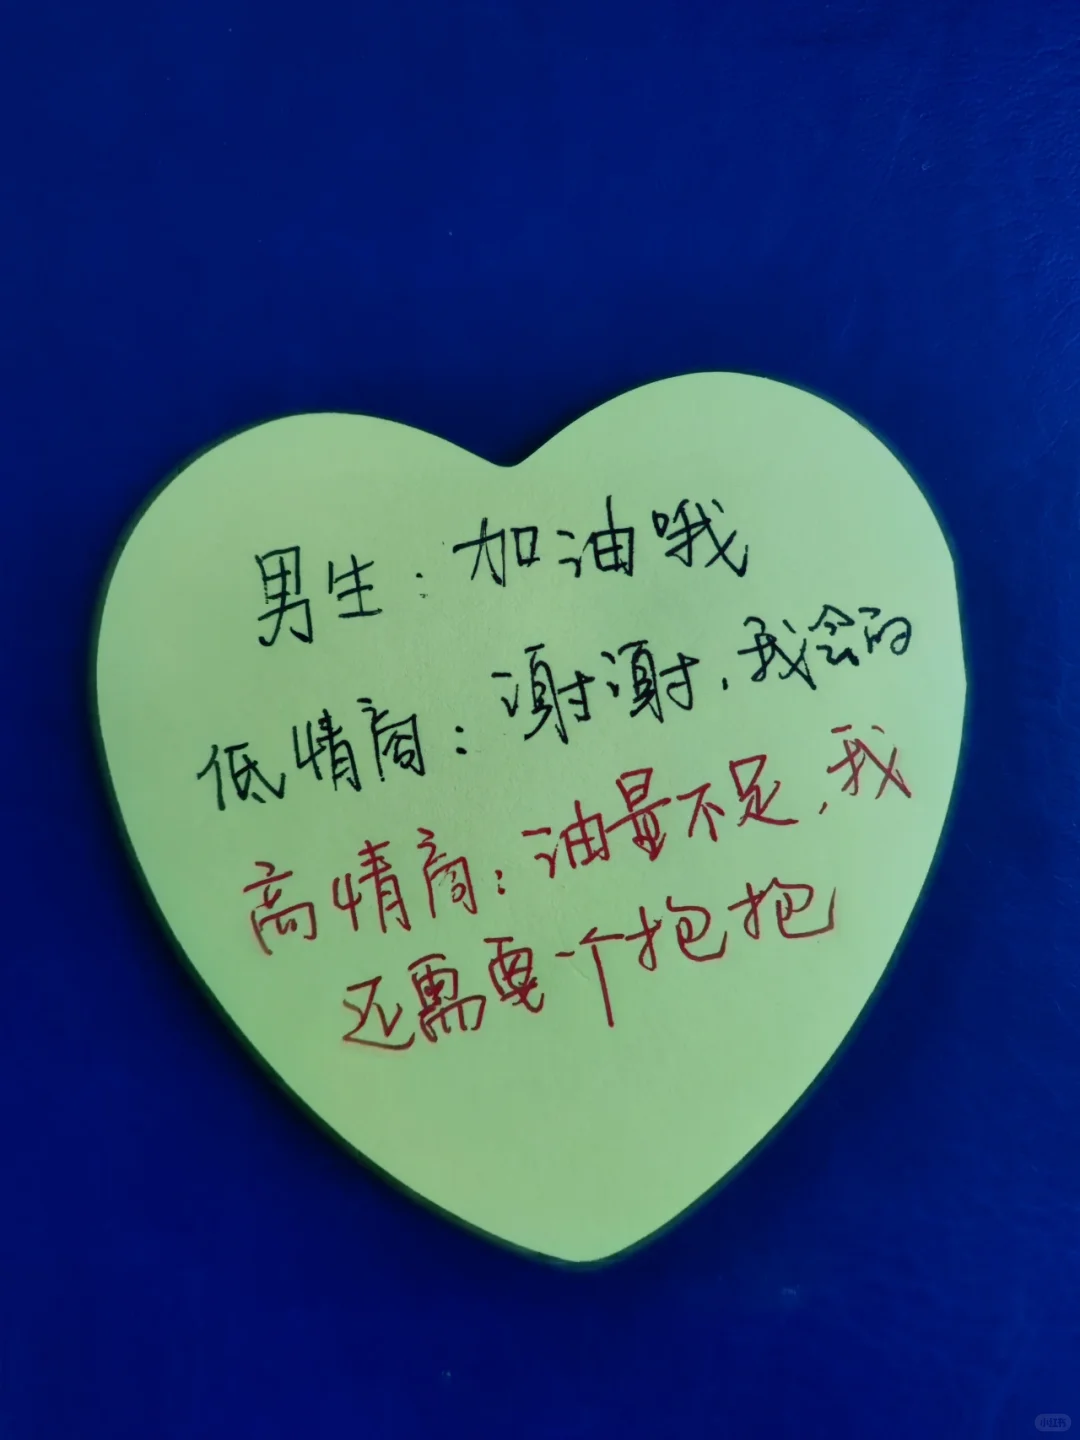 男生：加油哦
低情商：谢谢，我会的
高情商：油量不足，我
还需要一个抱抱
小红书